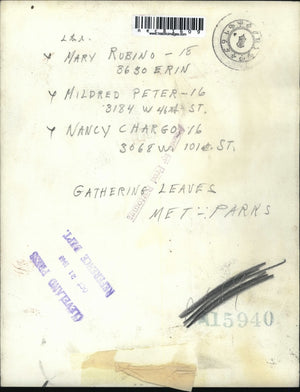 L.R.
MARY RUBINO - 18
3630 ERIN
MILDRED PETER - 16
3184 W 46th ST.
NANCY CHARGO, 16
3068 W. 101st ST.
GATHERING LEAVES
MET - PARKS
CLEVELAND PRESS
OCT 21
REFERENCE DEPT.
15940